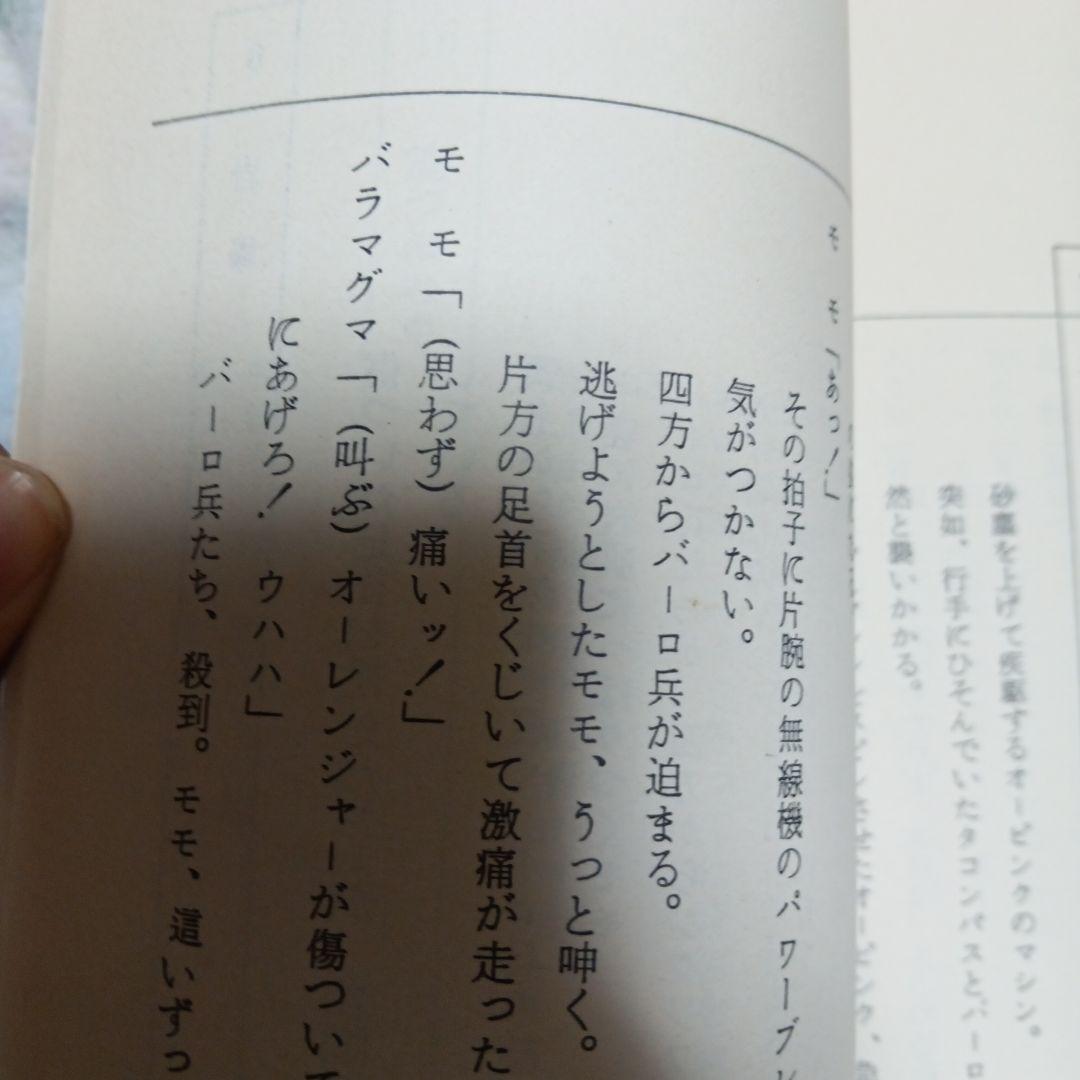 砂塵を上げて疾駆するオーピンクのマシン。
突如、行手にひそんでいたタコンパスとバーロ
然と襲いかかる。
モ　モ「あっ！」
その拍子に片腕の無線機のパワーブレ
気がつかない。
四方からバーロ兵が迫まる。
逃げようとしたモモ、うっと呻く。
片方の足首をくじいて激痛が走った
モ　モ「（思わず）痛いッ！」
バラマグマ「（叫ぶ）オーレンジャーが傷ついて
にあげろ！　ウハハ」
バーロ兵たち、殺到。モモ、這いずっ